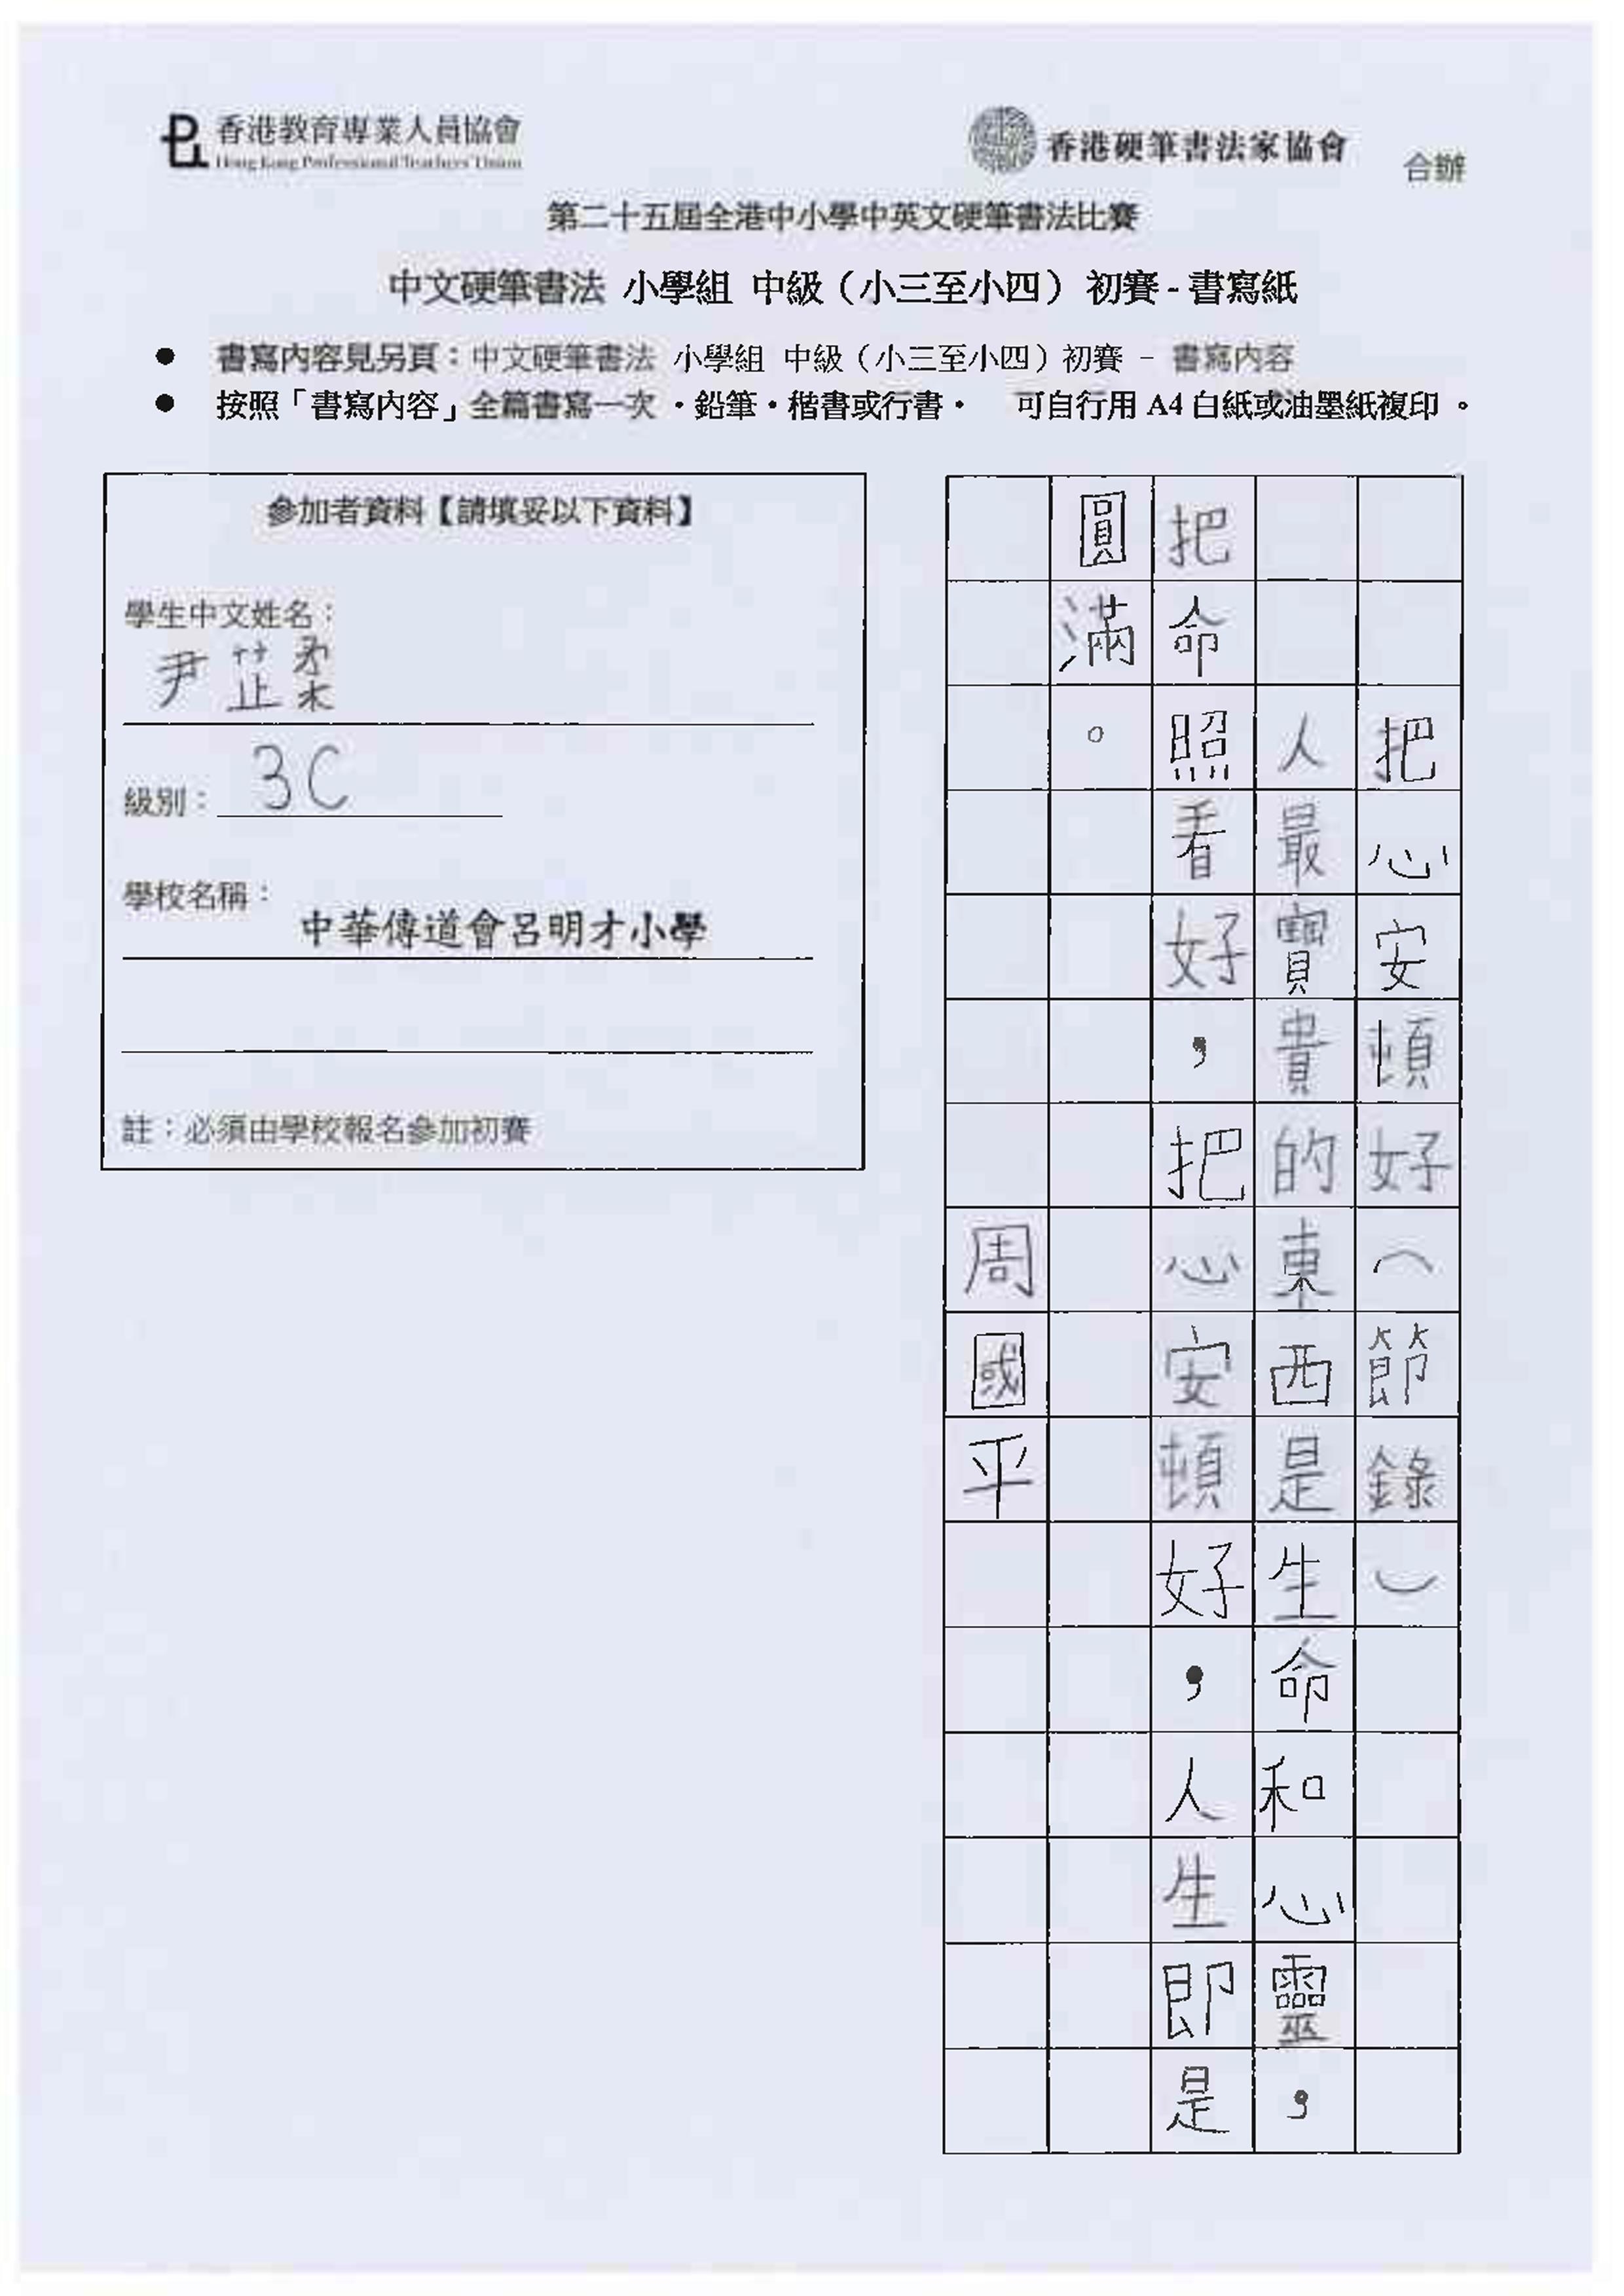 香港教育專業人員協會
Hong Kong Professional Teachers' Union
香港硬筆書法家協會
合辦
第二十五屆全港中小學中英文硬筆書法比賽
中文硬筆書法 小學組 中級（小三至小四） 初賽 - 書寫紙
● 書寫內容見另頁：中文硬筆書法 小學組 中級（小三至小四）初賽 － 書寫內容
● 按照「書寫內容」全篇書寫一次・鉛筆・楷書或行書・ 可自行用 A4 白紙或油墨紙複印。
參加者資料【請填妥以下資料】
學生中文姓名：
尹芷柔
級別： 3C
學校名稱：
中華傳道會呂明才小學
註：必須由學校報名參加初賽
把心安頓好（節錄）
人最寶貴的東西是生命和心靈，
把命照看好，把心安頓好，人生即是
圓滿。
周國平